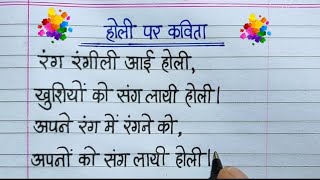 होली पर कविता
रंग रंगीली आई होली,
खुशियों को संग लायी होली।
अपने रंग में रंगने को,
अपनों को संग लायी होली।